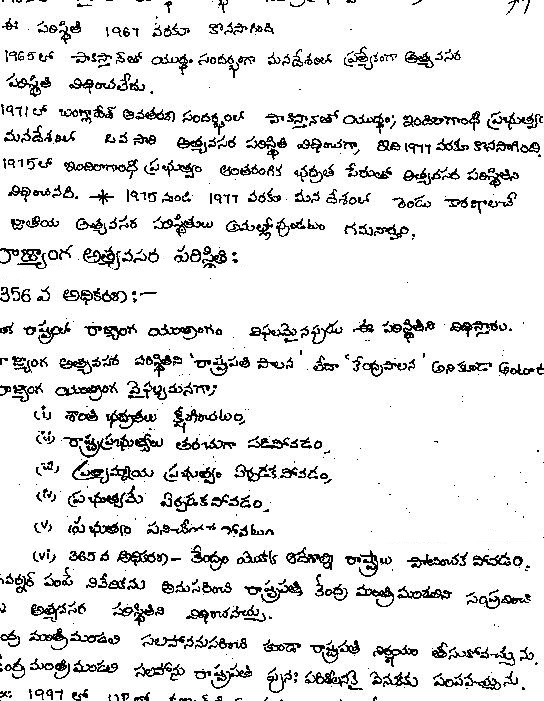 ఈ పరిస్థితి 1967 వరకూ కొనసాగింది
1965లో పాకిస్తాన్‌తో యుద్ధం సందర్భంగా మనదేశంలో ప్రత్యేకంగా అత్యవసర
పరిస్థితి విధించలేదు.
1971లో బంగ్లాదేశ్ అవతరణ సందర్భంలో పాకిస్తాన్‌తో యుద్ధం; ఇందిరాగాంధీ ప్రభుత్వం
మనదేశంలో ఒవ సారి అత్యవసర పరిస్థితి విధించగా, ఇది 1977 వరకూ కొనసాగింది.
1975లో ఇందిరాగాంధీ ప్రభుత్వం ఆంతరంగిక భద్రత పేరుతో అత్యవసర పరిస్థితిని
విధించినది. * 1975 నుండి 1977 వరకు మన దేశంలో రెండు కారణాలచే
జాతీయ అత్యవసర పరిస్థితులు అమల్లో వుండటం గమనార్హం.
రాజ్యాంగ అత్యవసర పరిస్థితి:
356 వ అధికరణ:-
రాష్ట్రంలో రాజ్యాంగ యంత్రాంగం విఫలమైనప్పుడు ఈ పరిస్థితిని విధిస్తారు.
రాజ్యాంగ అత్యవసర పరిస్థితిని 'రాష్ట్రపతి పాలన' లేదా 'కేంద్రపాలన' అని కూడా అంటారు
రాజ్యాంగ యంత్రాంగ వైఫల్యమనగా;
(i) శాంతి భద్రతలు క్షీణించటం,
(ii) రాష్ట్రప్రభుత్వాలు తరచుగా పడిపోవడం,
(iii) ప్రత్యామ్నాయ ప్రభుత్వం ఏర్పడక పోవడం,
(iv) ప్రభుత్వమే ఏర్పడక పోవడం,
(v) ప్రభుత్వం పనిచేయక పోవటం
(vi) 365 వ అధికరణ - కేంద్రం యొక్క ఆదేశాల్ని రాష్ట్రాలు పాటించక పోవడం.
గవర్నర్ పంపే నివేదికను అనుసరించి రాష్ట్రపతి కేంద్ర మంత్రి మండలిని సంప్రదించి
అత్యవసర పరిస్థితిని విధించవచ్చు.
కేంద్ర మంత్రిమండలి సలహాననుసరించి కుండా రాష్ట్రపతి నిర్ణయం తీసుకోవచ్చును.
కేంద్ర మంత్రిమండలి సలహాను రాష్ట్రపతి పునః పరిశీలనకై వెనుకకు పంపవచ్చును.
1997 లో UP లో